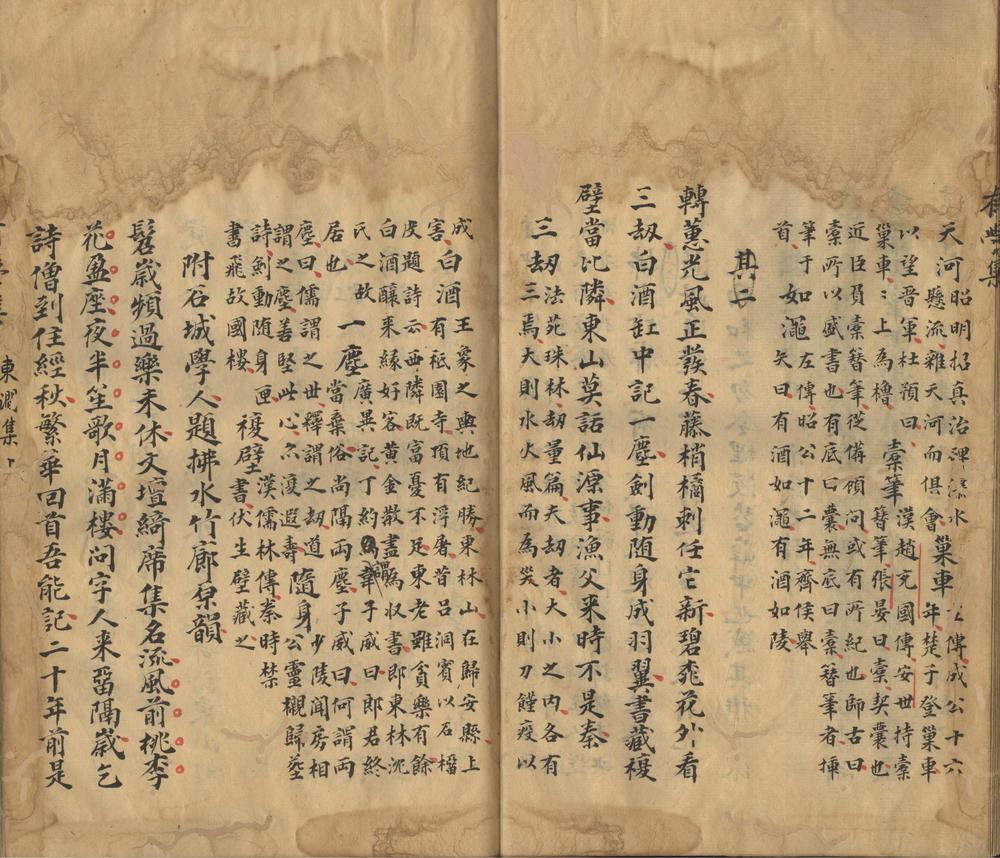 有學集
天河昭明招真治碑瀑水
懸流雜天河而俱會巢車左傳成公十六年楚子登巢車
以望晉軍杜預曰
巢車車上為櫓橐筆漢趙充國傳安世持橐
近臣負橐簪筆從備顧問或有所紀也師古曰
橐所以盛書也有底曰囊無底曰橐簪筆者插
筆于首如澠左傳昭公十二年齊侯舉
矢曰有酒如澠有酒如陵
其二
轉蕙光風正發春藤梢橘刺任它新碧桃花外看
三刼白酒缸中記一塵劍動隨身成羽翼書藏複
壁當比隣東山莫話仙源事漁父来時不是秦
三刼法苑珠林刼量篇夫刼者大小之內各有
三焉大則水火風而為災小則刀饉疫以
成
害白酒王象之輿地紀勝東林山在歸安縣上
有祇園寺頂有浮屠昔呂洞賓以石榴
皮題詩云西隣既富憂不足東老雖貧樂有餘
白酒釀来緣好客黄金散盡為収書郎東林沈
氏之故居也一塵廣異記丁約謂韋子威曰郎君終
當棄俗尚隔兩塵子威曰何謂兩
塵曰儒謂之世釋謂之刼道
謂之塵善堅此心亦復遐壽隨身少陵聞房相
公靈櫬歸塟
詩劍動隨身匣複壁漢儒林傳秦時禁
書飛故國樓書伏生壁藏之
附石城學人題拂水竹廊原韻
髫歲頻過樂未休文壇綺席集名流風前桃李
花盈座夜半笙歌月滿樓问字人来畱隔歲乞
詩僧到住經秋繁華回首吾能記二十年前是
東澗集